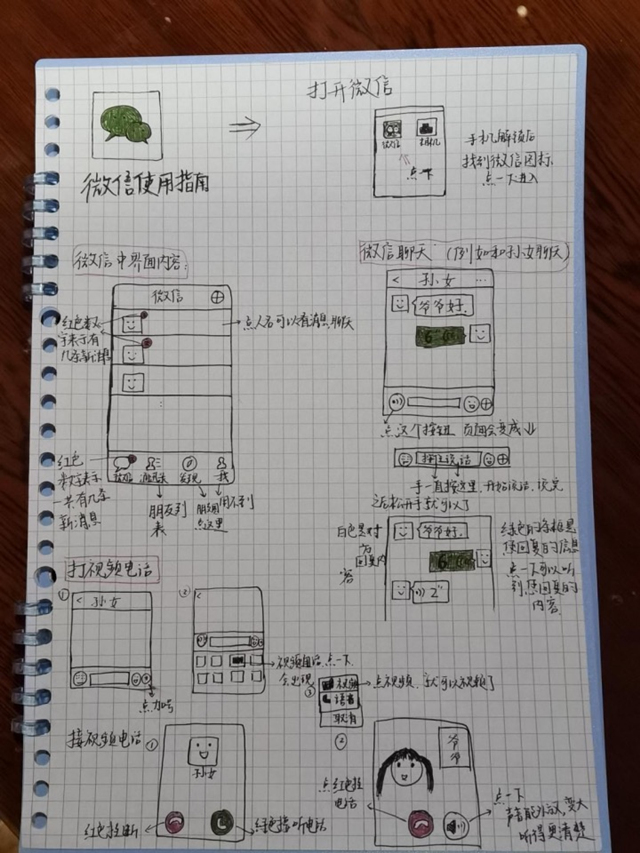 打开微信
微信使用指南
微信
手机解锁后
找到微信图标
点一下进入
点一下
微信中界面内容:
微信聊天 (例如和孙女聊天)
微信
红色数
字表示有
几条新消息
点入后可以看消息,聊天
红色
数字表示
一共有几条
新消息
微信
发现
我
朋友列
表
朋友圈
点这里
用不到
< 孙女 ...
爷爷好.
点这个按钮 页面会变成↓
按住说话
手一直按这里,开始说话,说完
之后松开手就可以了
白色是对
方
回复内
容
爷爷好.
2"
绿色的
您回复的信息
点一下可以听
到您回复的
内容.
打视频电话
① < 孙女
点加号
② <
视频通话,点一下
会出现
③
视频
语音
取消
点视频,就可以视频了
接视频电话 ①
孙女
红色挂断
绿色接听电话
②
爷爷
点红色挂
电话
点一下
声音能外放,变大
听得更清楚